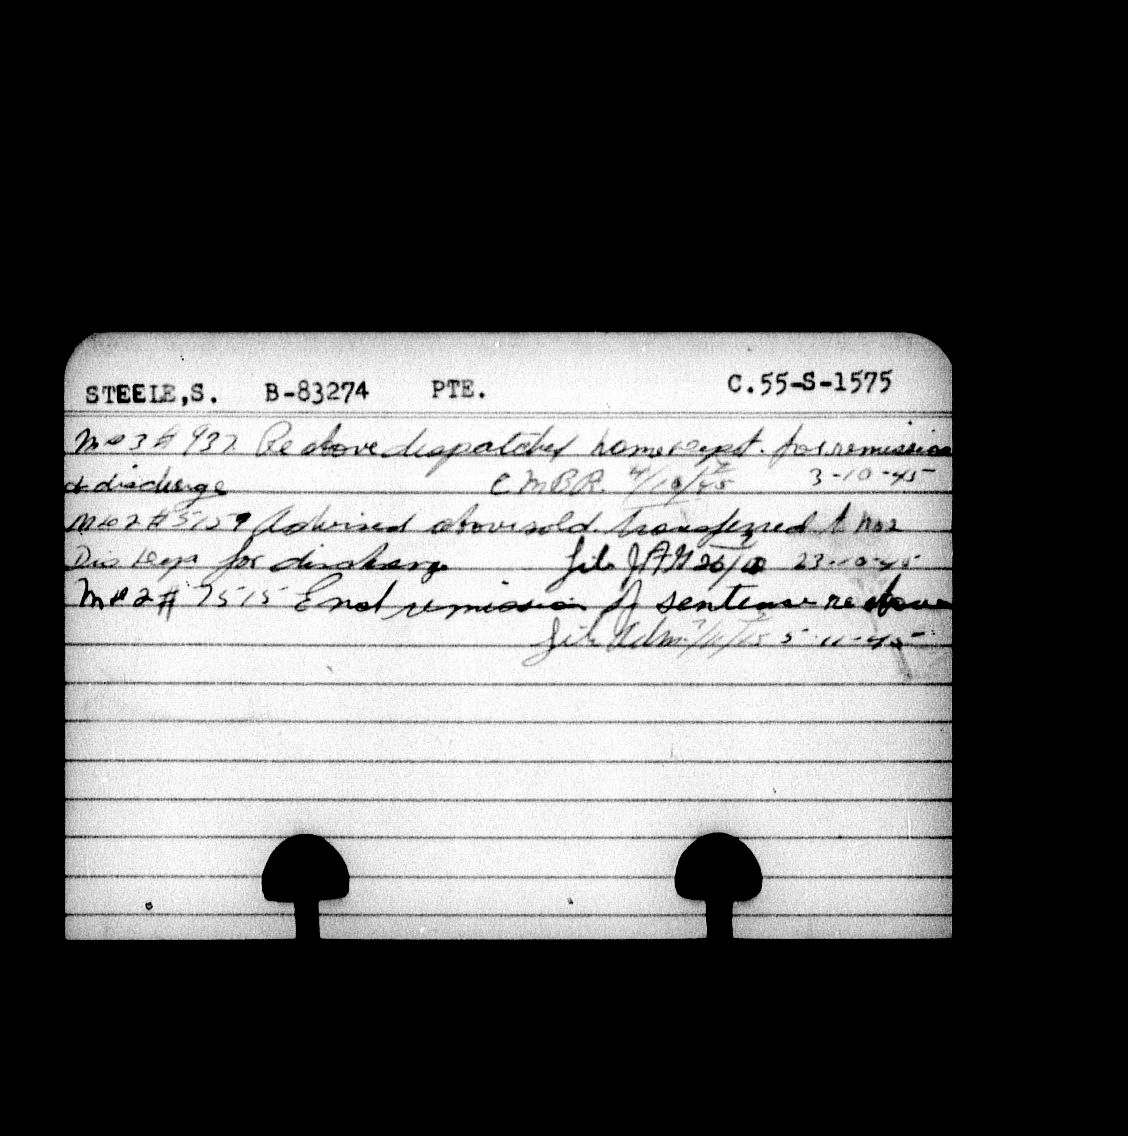 STEELE,S. B-83274 PTE. C.55-S-1575
# 937 Re above dispatched home for remission
& discharge C M B R. 4/10/45 3-10-45
#5159 Advised above sold transferred to no 2
Dis Dep for discharge 23-10-45
# 7515 Encl remission of sentence re above
Adm 5-11-45